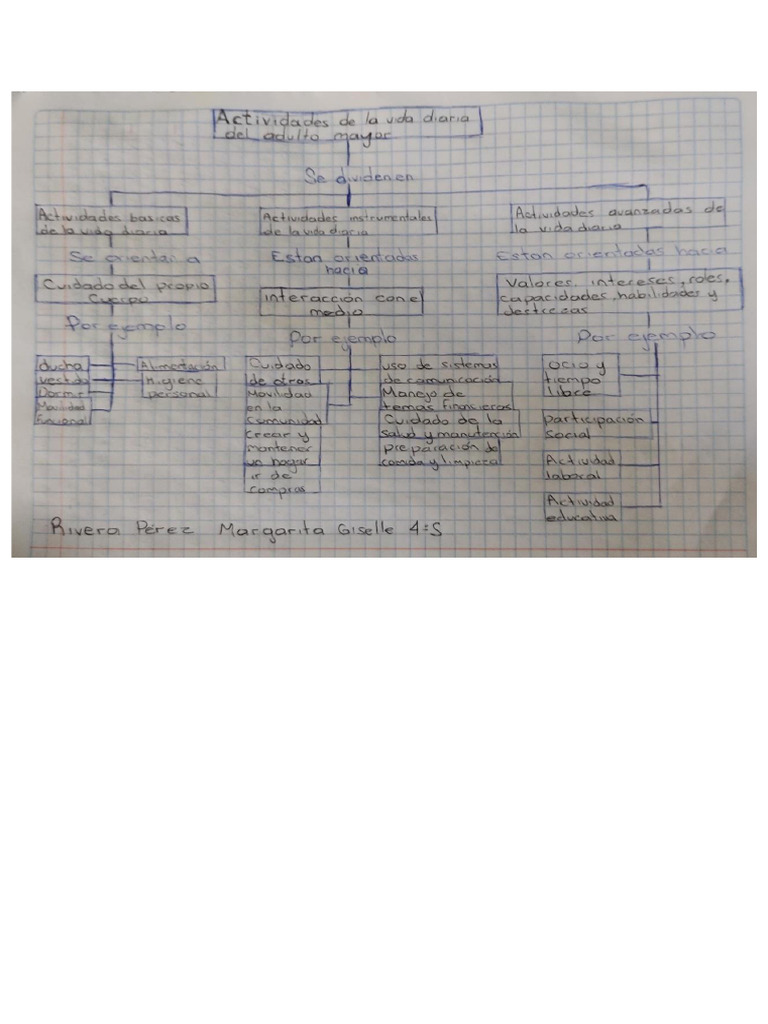 Actividades de la vida diaria
del adulto mayor
Se dividen en
Actividades basicas
de la vida diaria
Se orientan a
Cuidado del propio
Cuerpo
Por ejemplo
ducha
vestido
Dormir
Movilidad
funcional
Alimentación
higiene
personal
Actividades instrumentales
de la vida diaria
Estan orientadas
hacia
interacción con el
medio
Por ejemplo
Cuidado
de otros
Movilidad
en la
comunidad
crear y
mantener
un hogar
ir de
compras
uso de sistemas
de comunicación
Manejo de
temas financieros
Cuidado de la
salud y manutención
preparación de
comida y limpieza
Actividades avanzadas de
la vida diaria
Estan orientadas hacia
Valores, intereses, roles,
capacidades, habilidades y
destrezas
Por ejemplo
ocio y
tiempo
libre
participación
social
Actividad
laboral
Actividad
educativa
Rivera Pérez Margarita Giselle 4=S